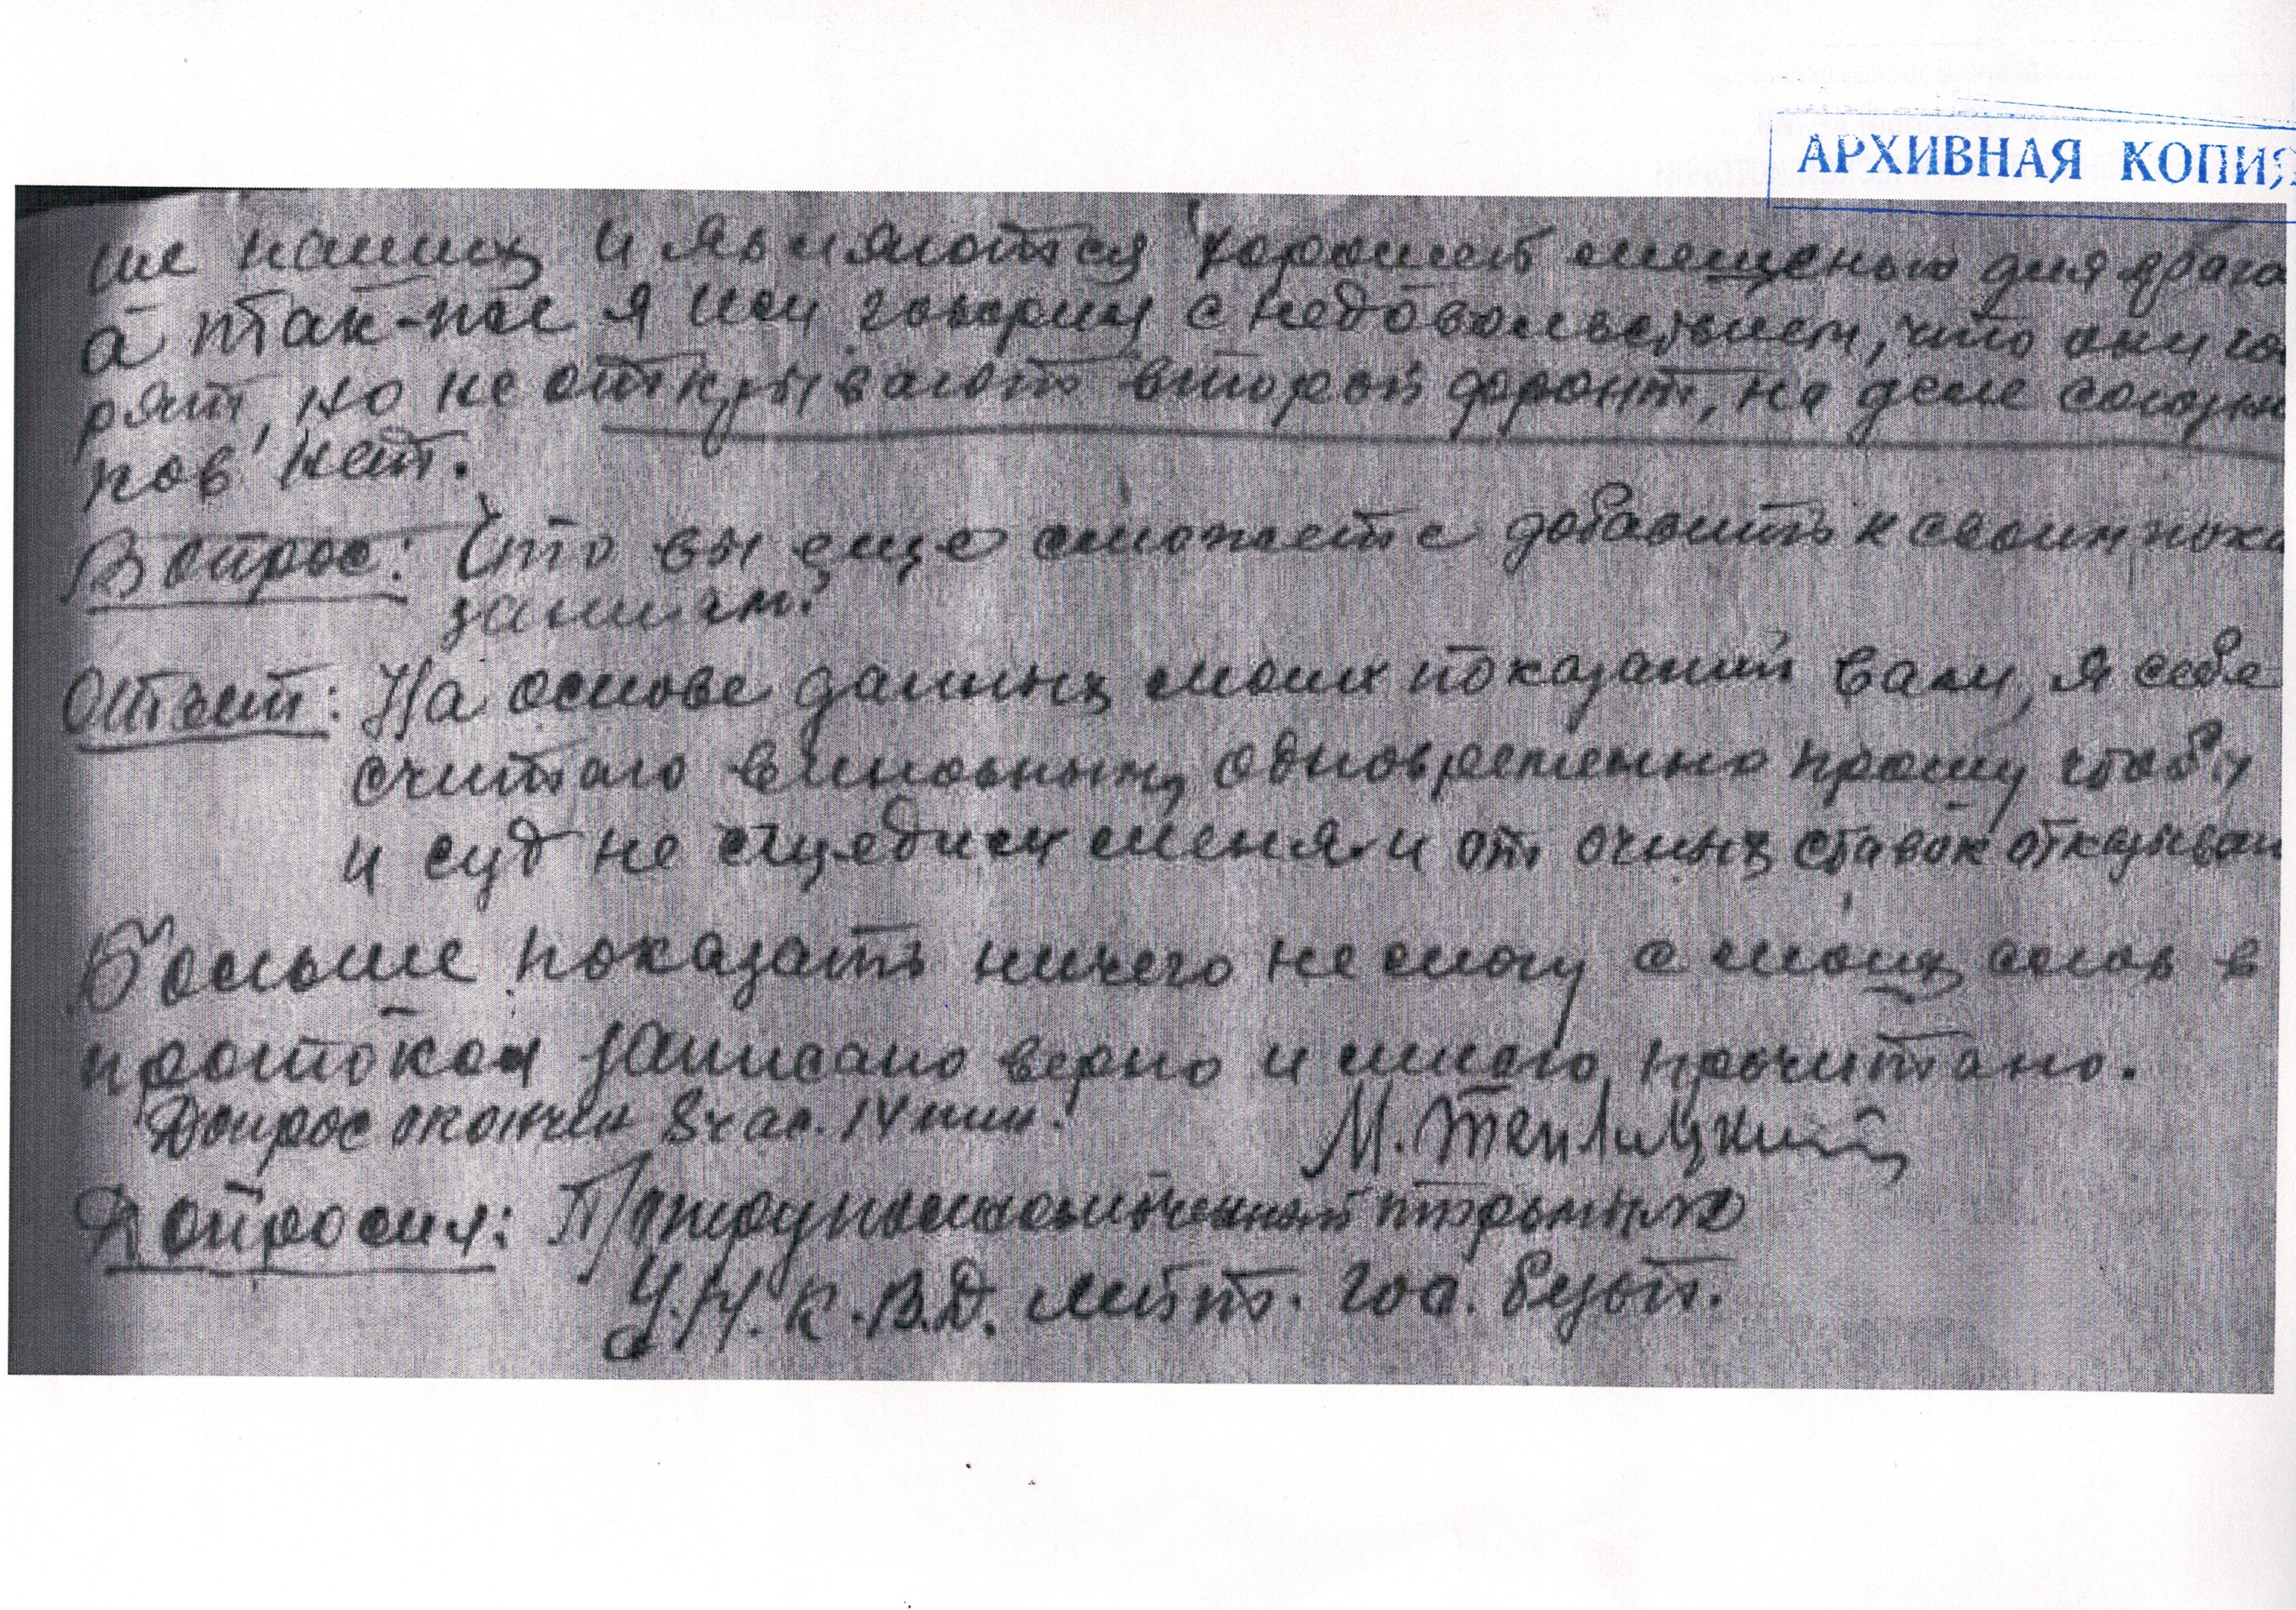 АРХИВНАЯ КОПИЯ
ше наших и являются хорошей мещенью для врага
а так-же я им говорил с недовольствием, что они го
рят, но не открывают второй фронт, на деле союзни
ков нет.
Вопрос: Что вы еще сможете добавить к своим пока
заниям?
Ответ: На основе данных моих показаний вам, я себя
считаю виновным, одновременно прошу чтобы
и суд не щедили меня и от очных ставок отказываю
Больше показать ничего не могу с моих слов в
протокол записано верно и мною прочитано.
Допрос окончен 8 час. 14 мин. М. Теплицкий
Допросил:
У.Н.К.В.Д. лейт. гос. безоп.